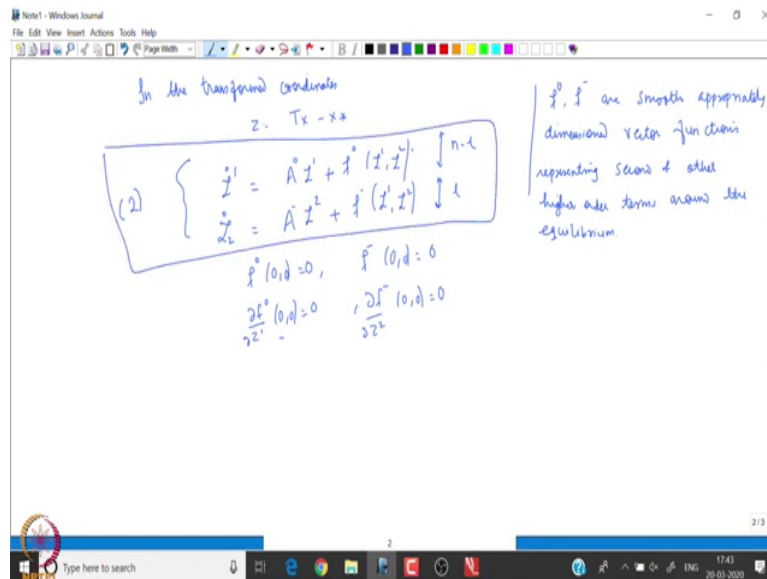 Note1 - Windows Journal
File Edit View Insert Actions Tools Help
Page Width
In the transformed coordinates
z = Tx - x*
(2)
ż¹ = A⁰ z¹ + f⁰ (z¹, z²) ↕ n-l
ż₂ = A⁻ z² + f⁻ (z¹, z²) ↕ l
f⁰ (0,0) = 0, f⁻ (0,0) = 0
∂f⁰/∂z¹ (0,0) = 0, ∂f⁻/∂z² (0,0) = 0
f⁰, f⁻ are smooth appropriately
dimensioned vector functions
representing second & other
higher order terms around the
equilibrium.
2/3
2
NPTEL
Type here to search
ENG
17:43
20-03-2020